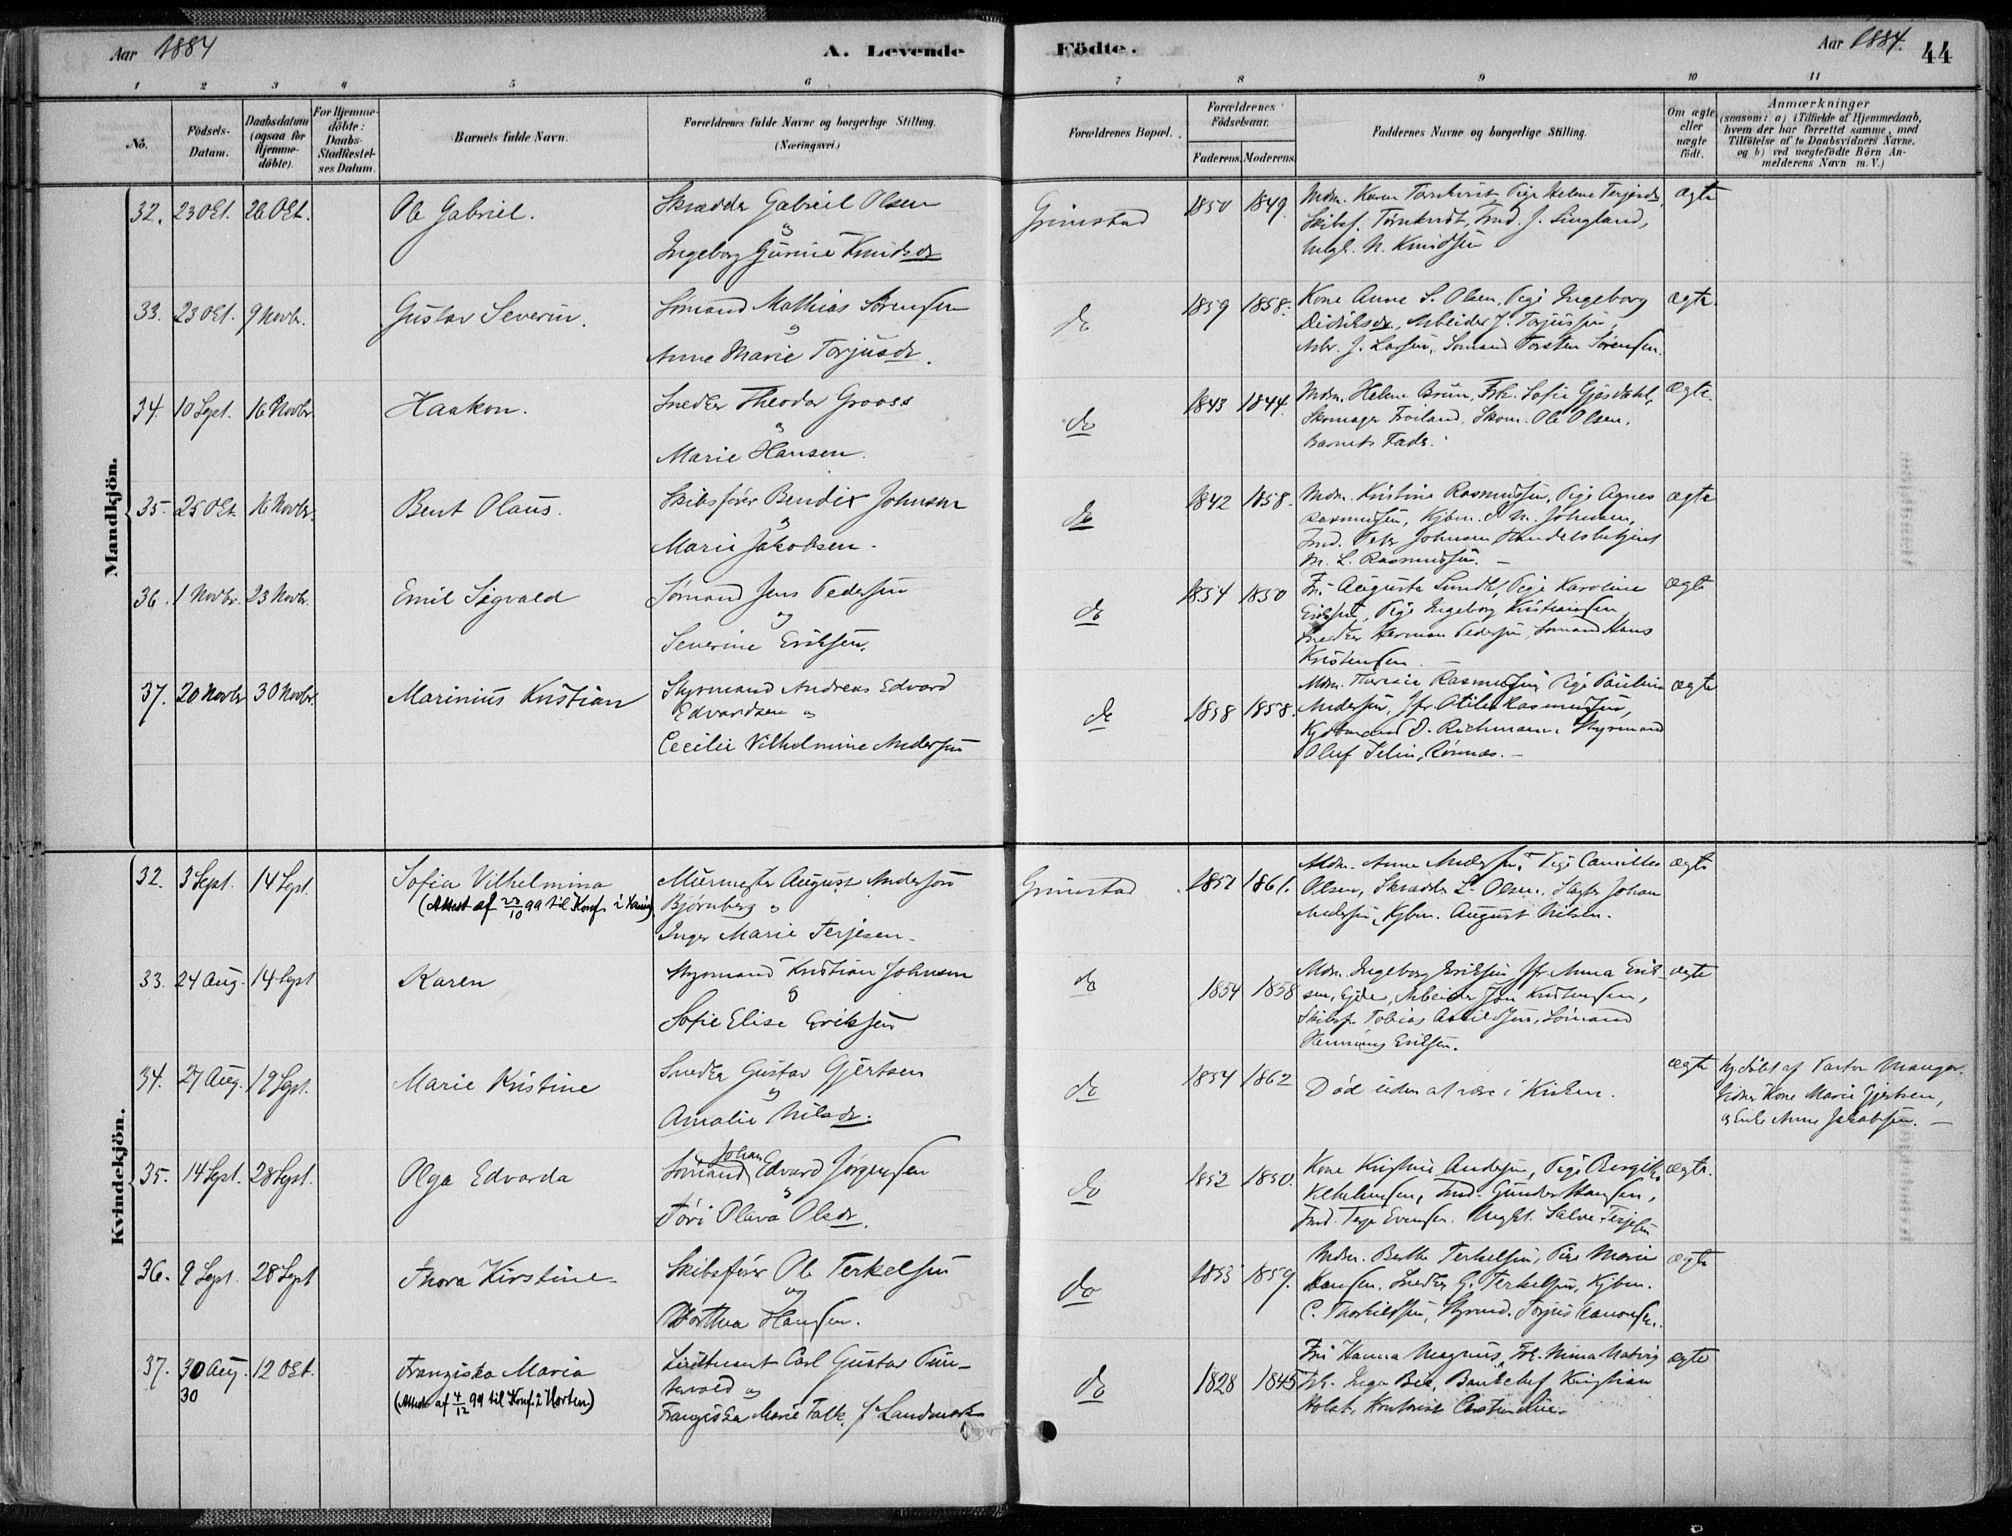 Aar 1884
A. Levende
Födte.
Aar 1884.
44
1 2 3 4 5 6 7 8 9 10 11
No.
Födsels-Datum.
Daabsdatum (ogsaa for Hjemme-döbte).
For Hjemme-döbte: Daabs-Stadfæstel-ses Datum.
Barnets fulde Navn.
Forældrenes fulde Navne og borgerlige Stilling. (Næringsvei.)
Forældrenes Bopæl.
Forældrenes Födselsaar.
Faderens. Moderens.
Faddernes Navne og borgerlige Stilling.
Om ægte eller uægte födt.
Anmærkninger
(saasom: a) i Tilfælde af Hjemmedaab, hvem der har forrettet samme, med Tilföielse af to Daabsvidners Navne, og b) ved uægtefödte Börn An-melderens Navn m. V.)
Mandkjön.
32. 23 Oct. 26 Oct. Ole Gabriel. Skrædder Gabriel Olsen
og
Ingeborg Gurine Knudsdr
Grimstad 1850 1849. Mdm. Karen Tørnkvist, Pige Helene Terjesdr,
Skibsf. Tørnkvist, Tmd. J. Lingland,
Ungk. N. Knudsen
ægte
33. 23 Oct. 9 Novbr. Gustav Severin. Sømand Mathias Sørensen
og
Anne Marie Torjusdr.
do 1859 1858. Kone Anne S. Olsen, Pige Ingeborg
Didriksdr, Arbeider J. Torjussen,
Arbr. J. Larsen, Sømand Torsten Sørensen.
ægte
34. 10 Sept. 16 Novbr Haakon. Snedker Theodor Grooss
og
Marie Hansen.
do 1843 1844. Mdm. Helene Bruun, Frk. Sofie Gjøsdahl,
Skomager Froiland, Skom. Ole Olsen,
Barnets Fader.
ægte.
35. 25 Oct. 16 Novbr. Bent Olaus. Skibsfører Bendix Johnsen
og
Marie Jakobsen.
do 1842 1858. Mdm. Kristine Rasmussen, Pige Agnes
Rasmussen, Kjbm. N. Johnsen,
Tmd. Peter Johnsen Handelsbetjent
M. L. Rasmussen.
ægte
36. 1 Novbr. 23 Novbr. Emil Sigvald Sømand Jens Pedersen
og
Severine Eriksen.
do 1854 1850 Fru Augusta Sundt, Pige Karoline
Eriksen, Pige Ingeborg Kristiansen
Snedker Herman Pedersen, Sømand Hans
Kristensen.
ægte
37. 20 Novbr 30 Novbr. Marinius Kristian Styrmand Andreas Edvard
Edvardsen og
Cecilie Vilhelmine Andersen
do 1858 1858. Mdm. Theresia Rasmussen, Pige Pauline
Andersen, Jfr. Otilie Rasmussen,
Kjøbmand D. Richmann, Styrmand
Oluf Rønnæs.
ægte
Kvindekjön.
32. 3 Sept. 14 Sept. Sofia Vilhelmina
(Attest af 23/10 99 til Konf. i )
Murmester August Anderson
Bjørnberg og
Inger Marie Terjesen.
Grimstad 1857 1861. Mdm. Anne Andersen, Pige Camilla
Olsen, Skrædder L. Olsen, Slagter Johan
Andersen, Kjbm. August Nilsen.
ægte
33. 24 Aug. 14 Sept Karen Styrmand Kristian Johnsen
og
Sofie Elise Eriksen
do 1854 1858 Mdm. Ingeborg Eriksen, Jfr Anna Erik-
sen, Arbeider Jon Kristensen,
Skibsf. Tobias Sømand
Henning Eriksen.
ægte
34. 27 Aug. 19 Sept. Marie Kristine Snedker Gustav Gjertsen
og
Amalie Nilsdr.
do 1854 1862 Død uden at være i Kirken.
ægte Hj.døbt af Pastor Manger.
Vidner Kone Marie Gjertsen,
og Enke Anne Jakobsen.
35. 14 Sept. 28 Sept. Olga Edvarda Sømand Johan Edvard Jørgensen
og
Jøri Olava Olsdr.
do 1852 1850. Kone Kristine Andersen, Pige Bergitte
Vilhelmsen, Tmd. Gunder Hansen,
Tmd. Terje Evensen. Ungk. Salve Terjesen
ægte.
36. 9 Sept. 28 Sept Thora Kirstine Skibsfører Ole Terkelsen
og
Dorthea Hansen.
do 1853 1859. Mdm. Berthe Terkelsen, Pige Marie
Hansen, Snedker G. Terkelsen, Kjbm.
C. Thorkildsen, Styrmd. Torjus Aanonsen.
ægte
37. 30 Aug. 12 Oct. Franziska Maria
30
(Attest af 4/12 99 til Konf. i Horten)
Lieutnant Carl Gustav Tun-
tevold og
Franziska Marie Falk f. Landmark
do 1828 1845 Fru Hanna Magnus, Frk. Mina Natvig
Frk. Inga Bie, Bankchef Kristian
Holst, Kontorist Carsten Lie.
ægte